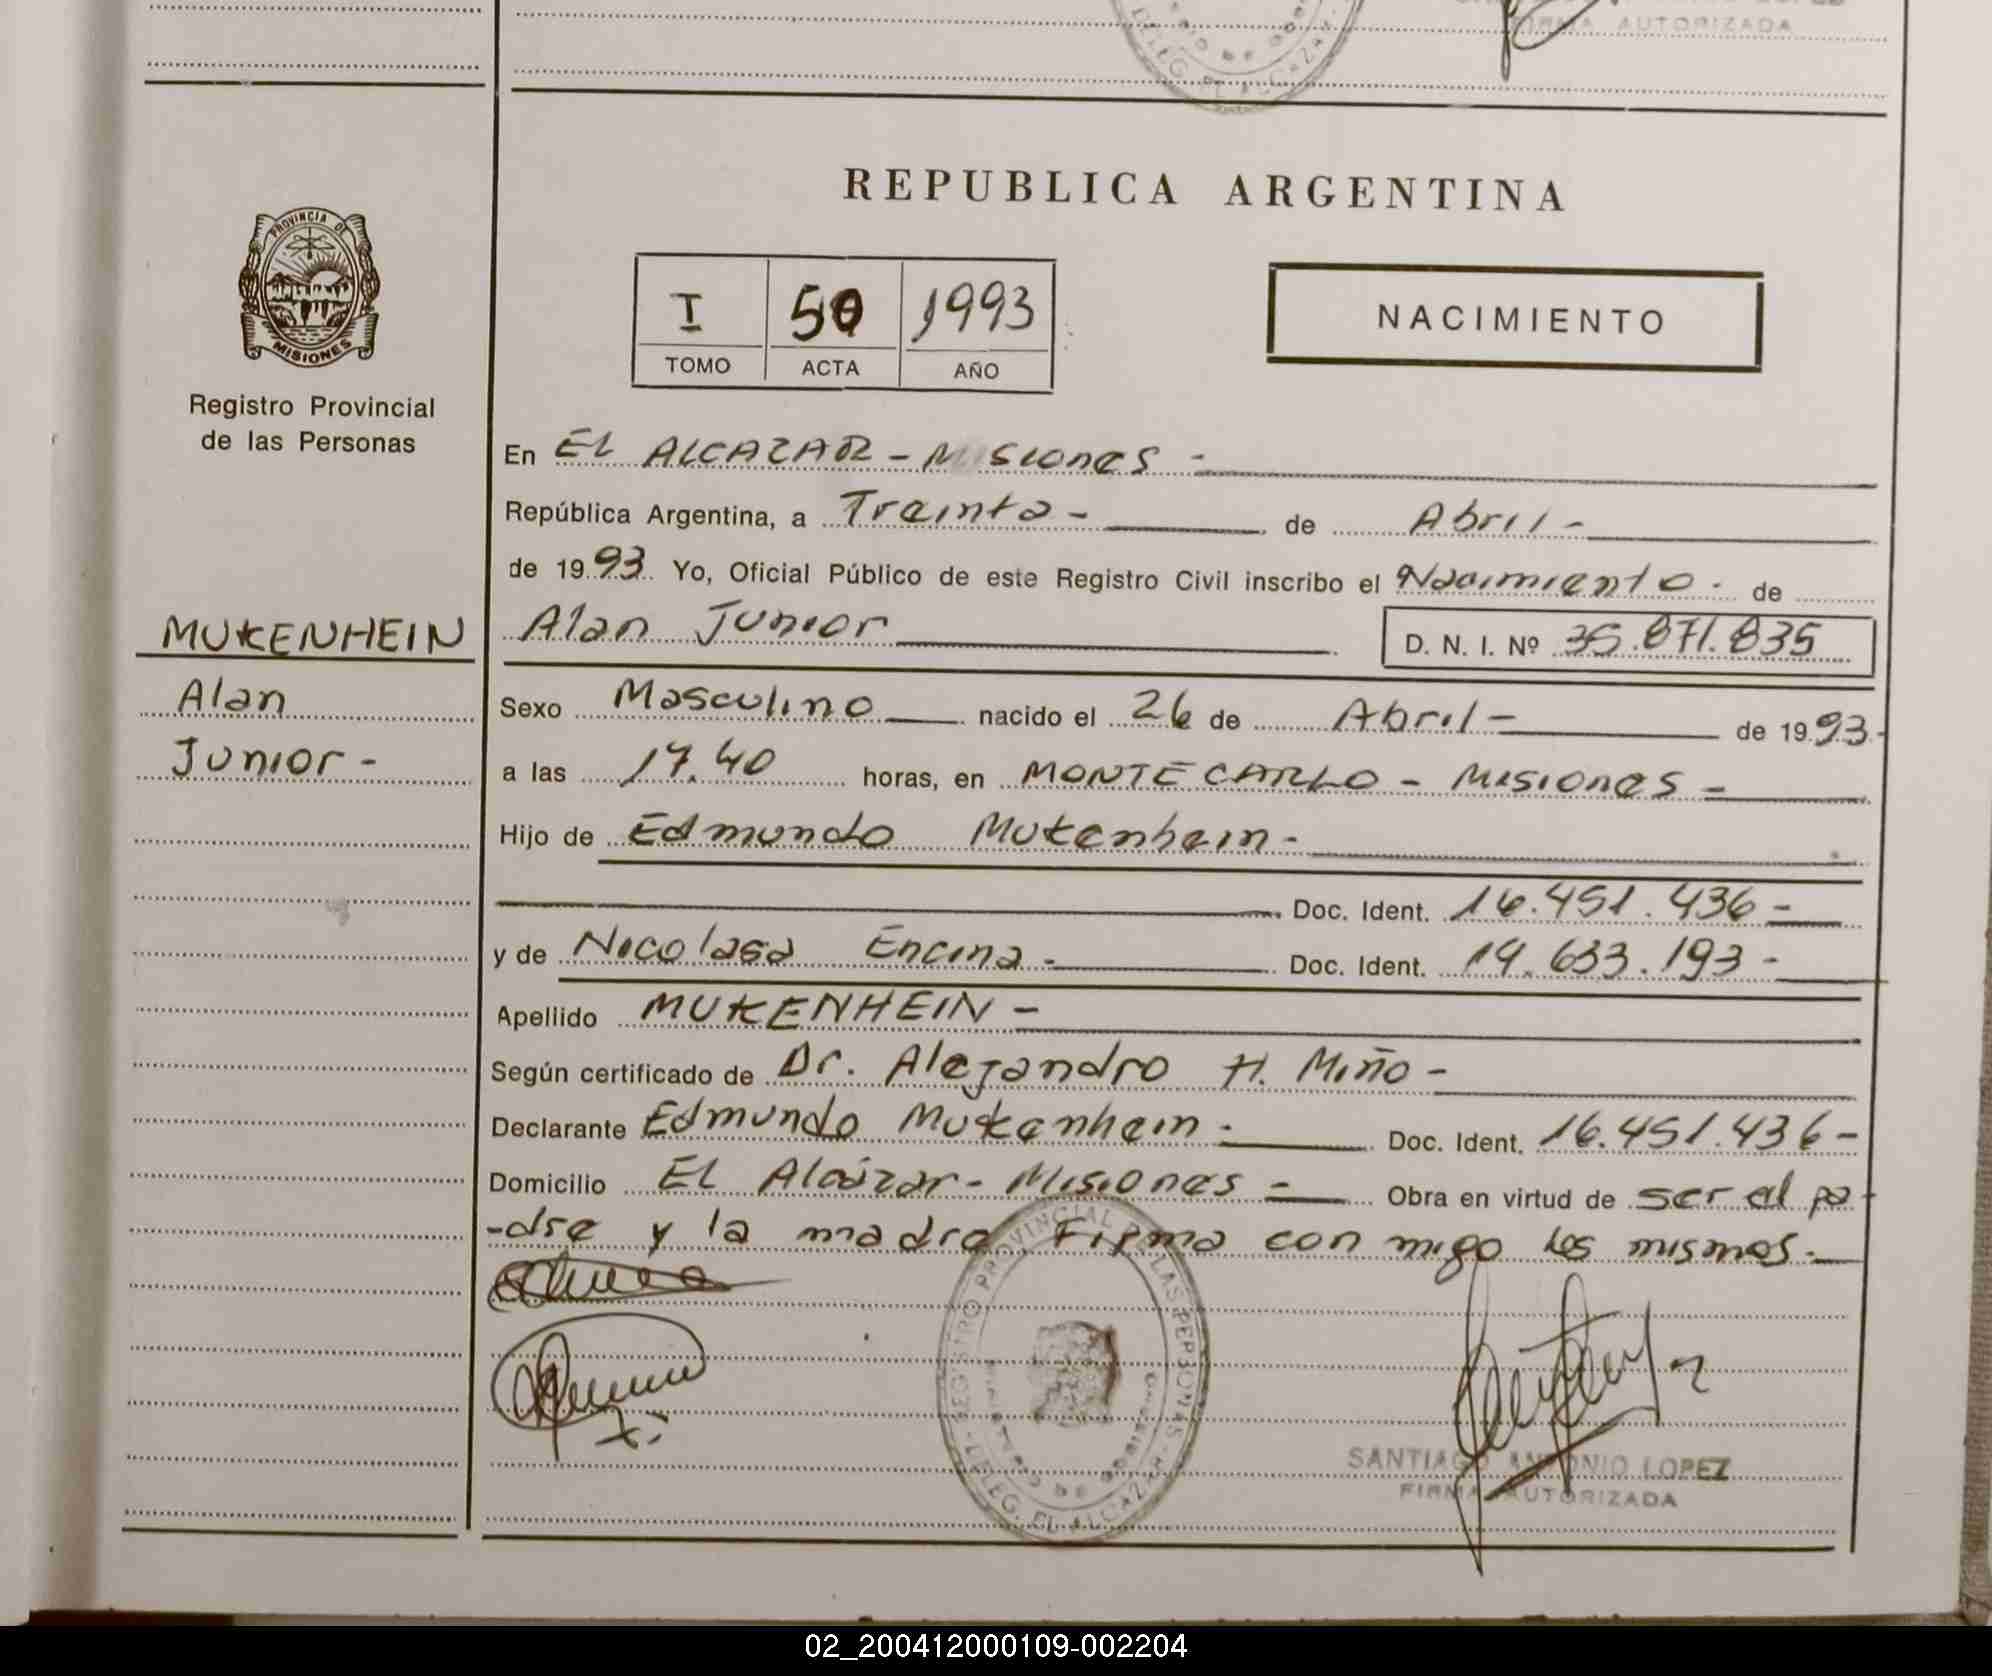 FIRMA AUTORIZADA
DELEG. EL ALCAZAR
REPUBLICA ARGENTINA
PROVINCIA DE
MISIONES
Registro Provincial
de las Personas
I 50 1993
TOMO ACTA AÑO
NACIMIENTO
En EL ALCAZAR - Misiones -
República Argentina, a Treinta - de Abril -
de 1993. Yo, Oficial Público de este Registro Civil inscribo el Nacimiento - de
MUKENHEIN Alan Junior D. N. I. Nº 35.871.835
Alan Sexo Masculino nacido el 26 de Abril - de 1993-
Junior - a las 17.40 horas, en MONTECARLO - Misiones -
Hijo de Edmundo Mukenhein -
Doc. Ident. 16.451.436 -
y de Nicolasa Encina - Doc. Ident. 14.633.193 -
Apellido MUKENHEIN -
Según certificado de Dr. Alejandro H. Miño -
Declarante Edmundo Mukenhein - Doc. Ident. 16.451.436 -
Domicilio EL Alcázar - Misiones - Obra en virtud de ser el pa-
-dre y la madre Firma con migo los mismos -
REGISTRO PROVINCIAL DE LAS PERSONAS
DELEG. EL ALCAZAR
SANTIAGO ANTONIO LOPEZ
FIRMA AUTORIZADA
02_200412000109-002204